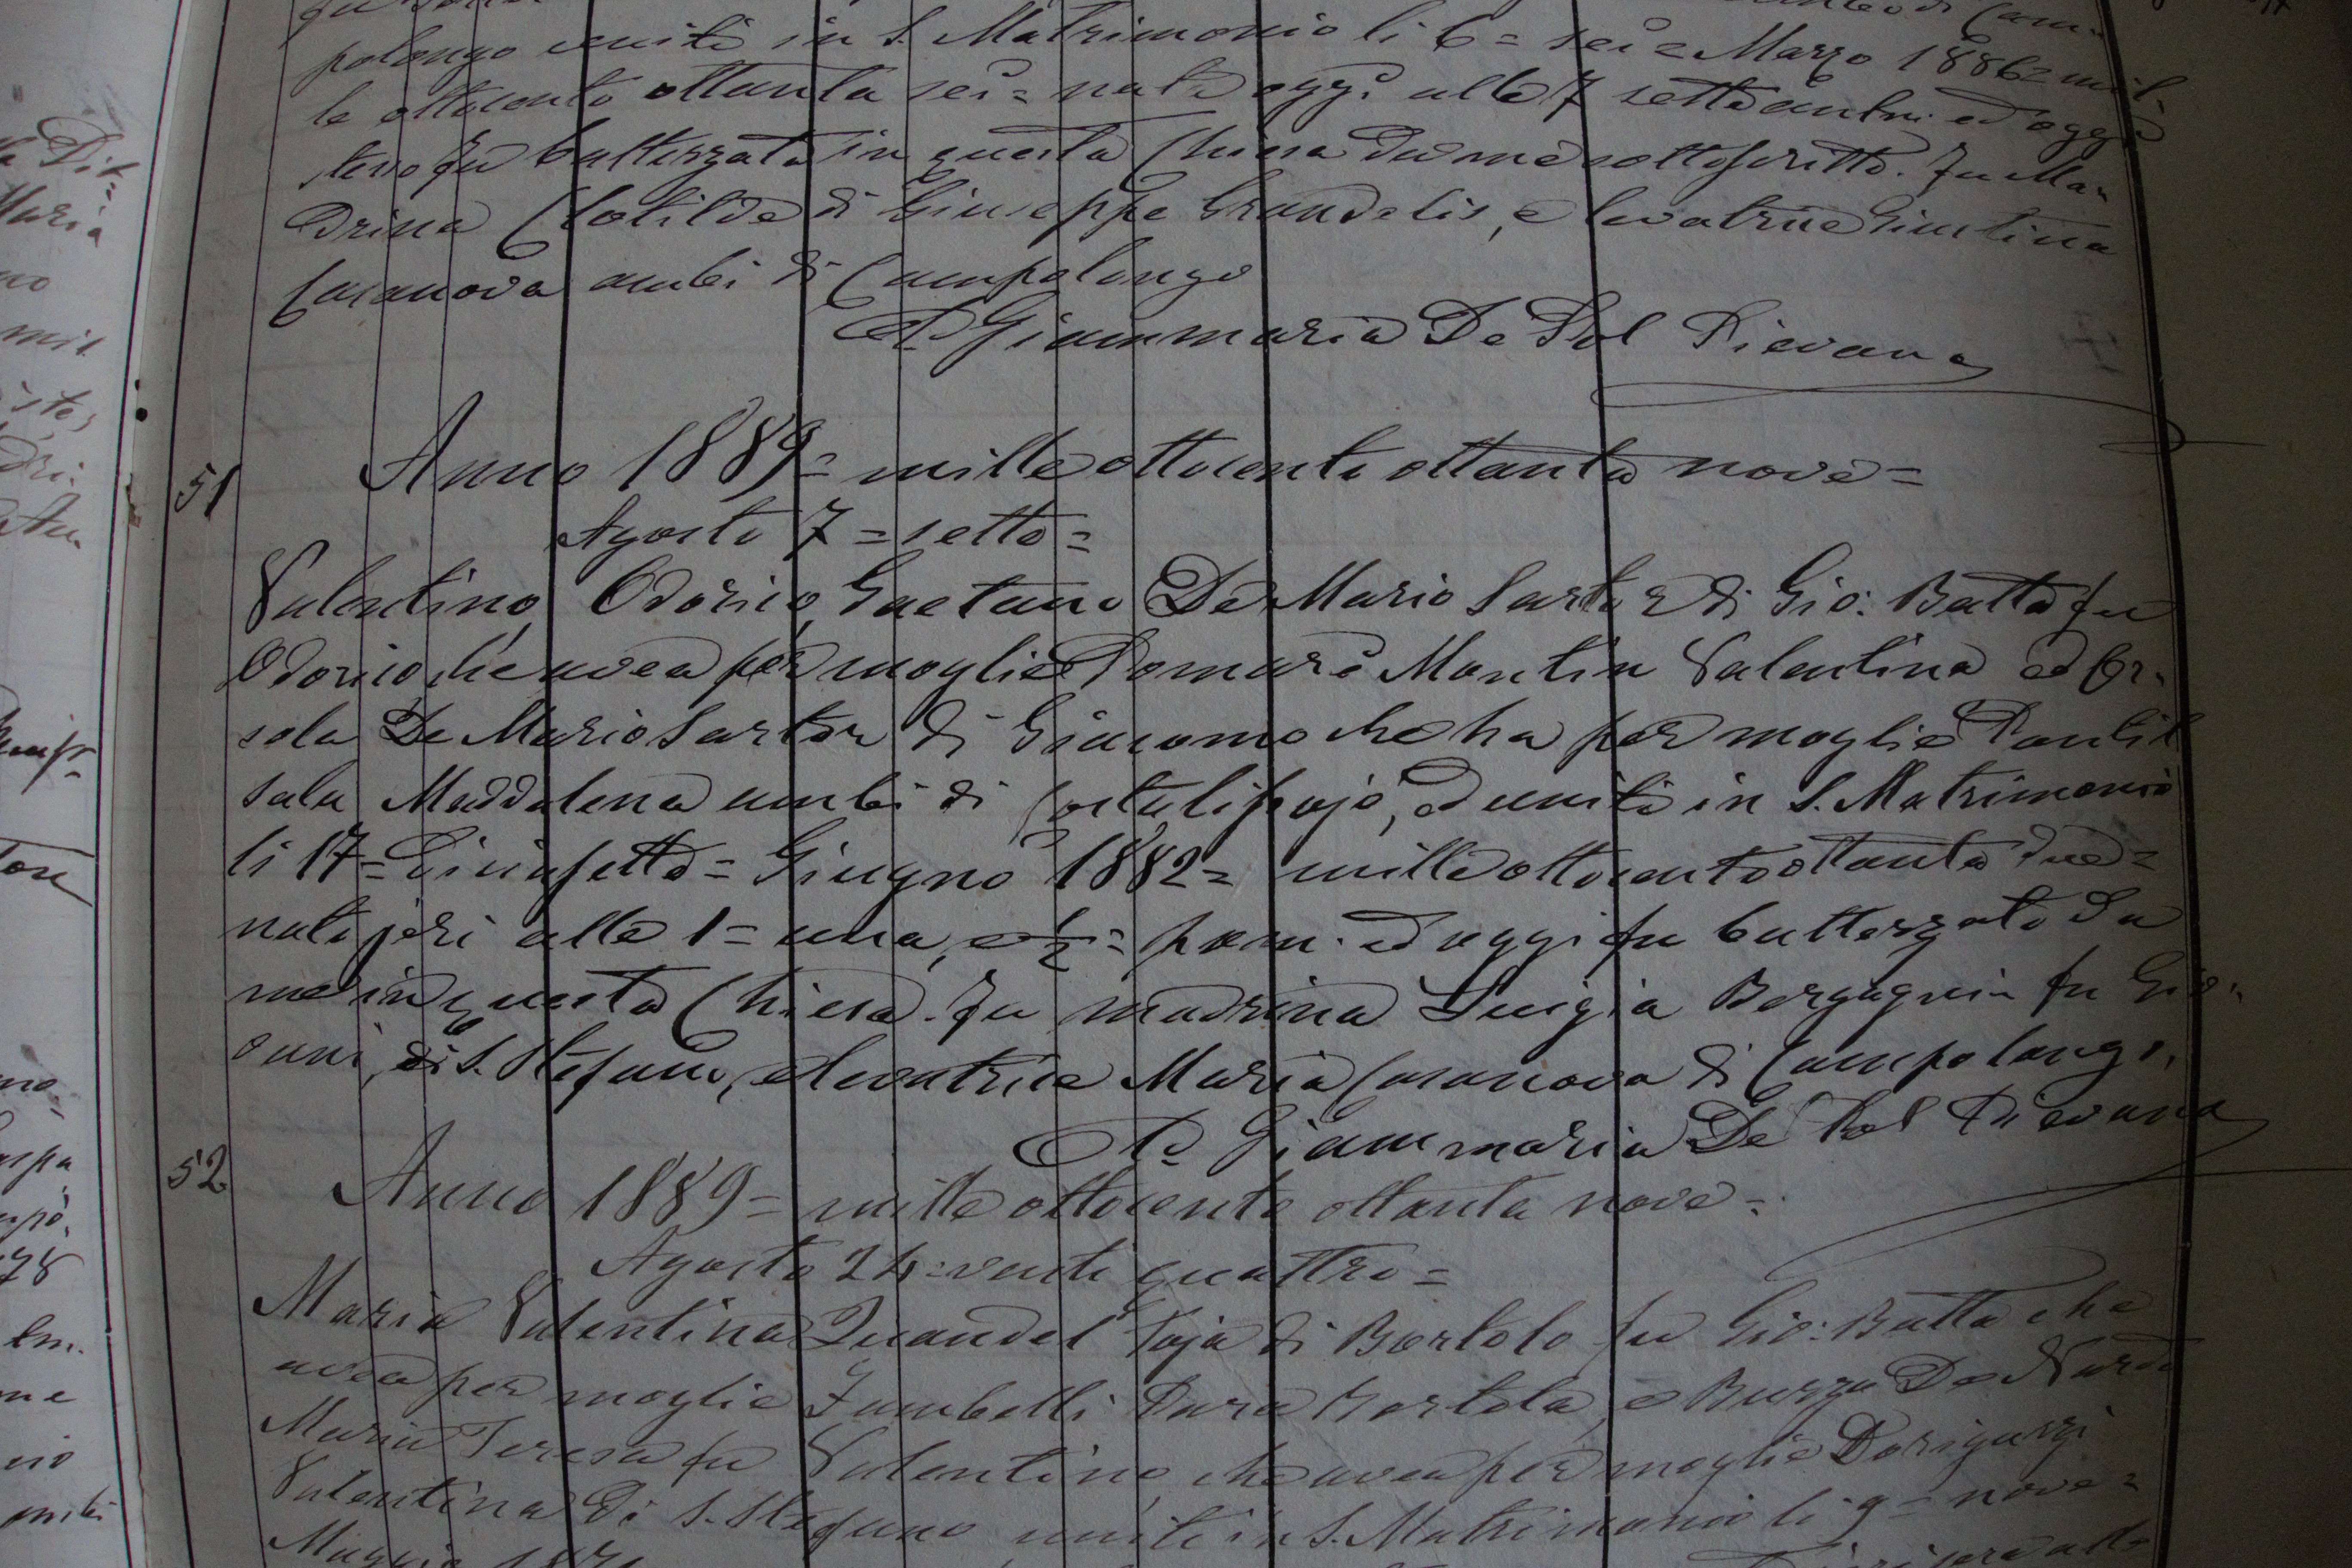 polongo uniti in S. Matrimonio li 6 = sei = Marzo 1886 = mil-
le ottocento ottanta sei = nata oggi alle 7 sette antim. ed oggi
stesso fu battezzata in questa Chiesa da me sottoscritto. Fu Ma-
drina Clotilde di Giuseppe Grandelis, e levatrice Giustina
Casanova ambi di Campolongo
Giammaria De Pol Pievano
51
Anno 1889 = mille ottocento ottanta nove =
Agosto 7 = sette =
Valentino, Odorico, Gaetano De Mario Sartor di Gio: Batta fu
Odorico che avea per moglie Pomarè Martin Valentina ed Or-
sola De Mario Sartor di Giacomo che ha per moglie
Maddalena ambi di Costalissojo, ed uniti in S. Matrimonio
li 17 = diciasette = Giugno 1882 = mille ottocento ottanta due =
nato jeri alle 1 = una, e 1/2 = pom. ed oggi fu battezzato da
me in questa Chiesa. Fu madrina Luigia Bergagnin fu Gio-
vanni, di S. Stefano, e levatrice Maria Casanova di Campolongo.
Giammaria De Pol Pievano
52
Anno 1889 = mille ottocento ottanta nove =
Agosto 24 = venti quattro =
Maria Valentina Quandel Toja di Bortolo fu Gio: Batta che
avea per moglie Zambelli Bortola, e Buzzo De Nardo
Maria Teresa fu Valentino, che avea per moglie Doriguzzi
Valentina di S. Stefano uniti in S. Matrimonio li 9 = nove =